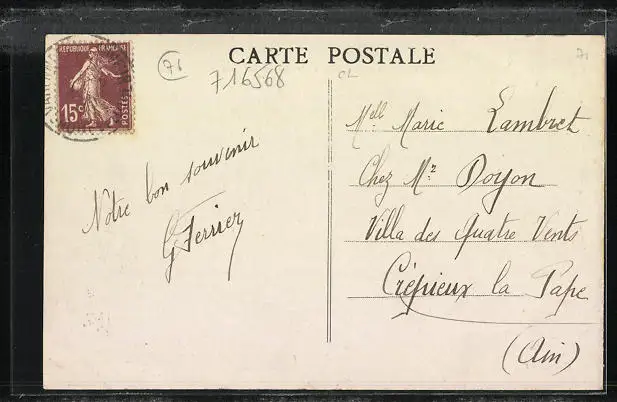 CARTE POSTALE
REPUBLIQUE FRANÇAISE
15c
POSTES
71
716568
CL
71
Notre bon souvenir
G Ferrier
Mell Marie Lambret
Chez Mr Doyon
Villa des Quatre Vents
Crépieux la Pape
(Ain)